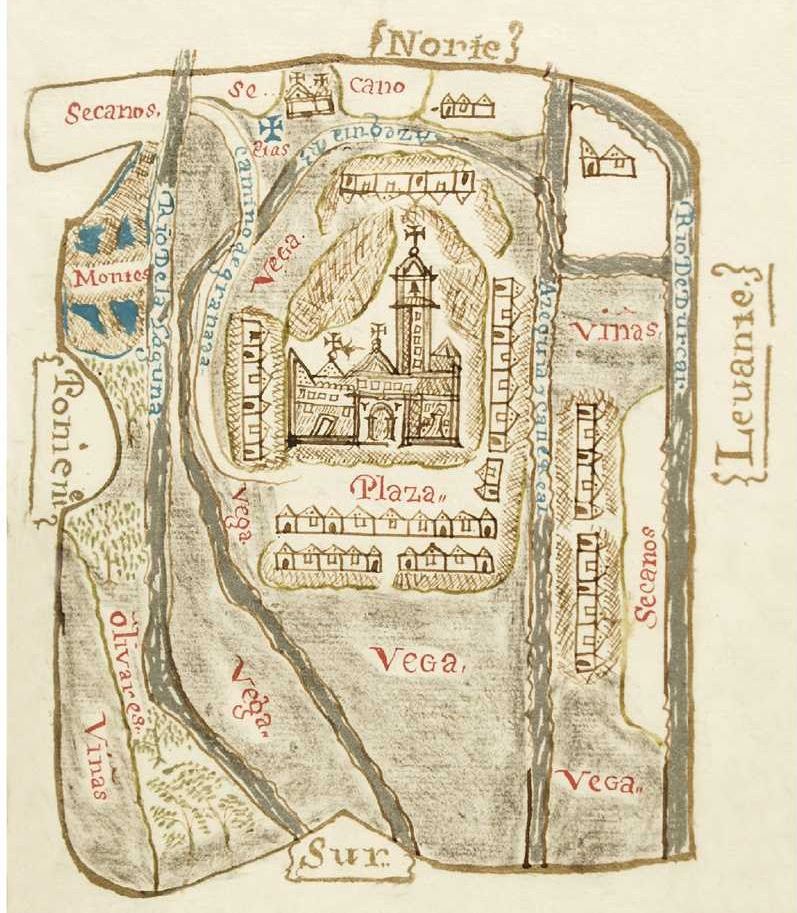 {Norte}
Secanos.
se
cano
eras
Azequia R.
camino de granada
Vega.
Montes
Rio De la Laguna
Rio De Durcar.
{Leuante.}
Vinãs.
Azequia
{Poniente}
Plaza.
Vega.
Secanos
olivares.
Viñas
Vega.
VEGA.
Vega.
{Sur}